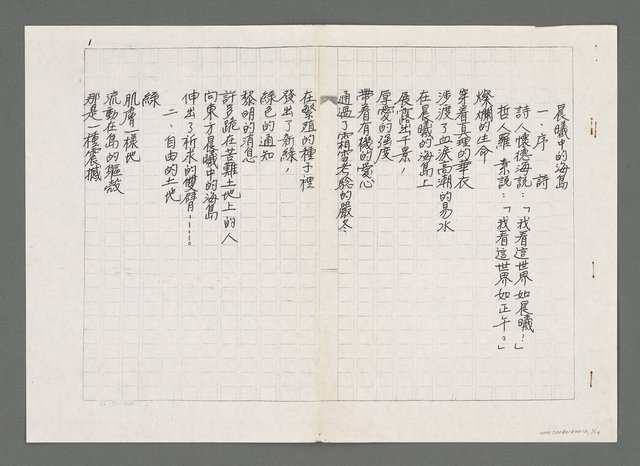 晨曦中的海島
一、序 詩
詩人懷德海說：「我看這世界如晨曦！」
哲人羅素說：「我看這世界如正午。」
燦爛的生命
穿着真理的華衣
涉渡了血淚高潮的易水
在晨曦的海島上
展露出千景，
厚愛的強度
帶着有機的愛心
通過了霜雪考驗的嚴冬
在繁殖的種子裡
發出了新綠，
綠色的通知
黎明的消息
許多跪在苦難土地上的人
向東方晨曦中的海島
伸出了祈求的雙臂……。
二、自由的土地
綠
肌膚一樣地
流動在島的軀殼
那是一種震撼
1